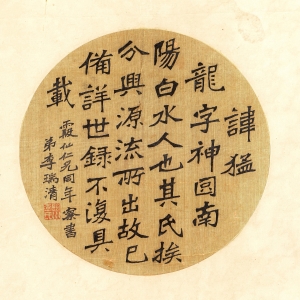 諱猛
龍字神囧南
陽白水人也其氏挨
分興源流所出故已
備詳世錄不復具
載
霞仙仁兄同年察書
弟李瑞清